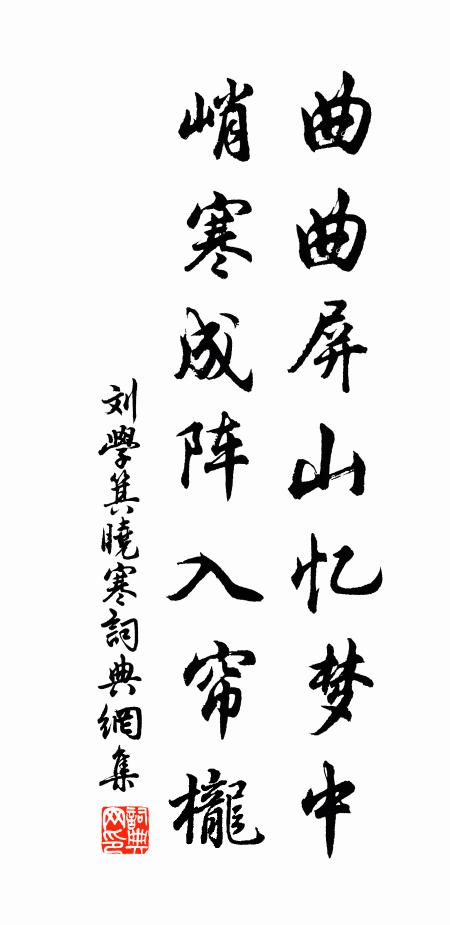 曲曲屏山忆梦中
峭寒成阵入帘櫳
刘學箕曉寒詞典網集
詞典网印